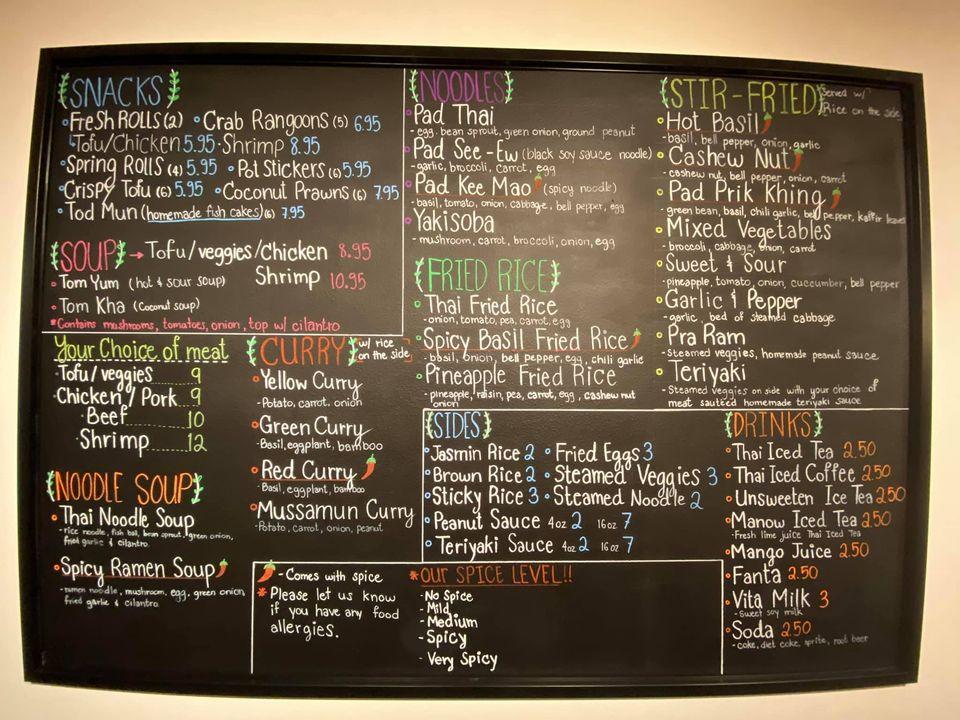 SNACKS
Fresh Rolls (2) Crab Rangoons (5) 6.95
Tofu/Chicken 5.95 Shrimp 8.95
Spring Rolls (4) 5.95 Pot Stickers (6) 5.95
Crispy Tofu (6) 5.95 Coconut Prawns (6) 7.95
Tod Mun (homemade fish cakes) (6) 7.95
SOUP → Tofu/veggies/Chicken 8.95
Shrimp 10.95
Tom Yum (hot & sour soup)
Tom Kha (Coconut soup)
*Contains mushrooms, tomatoes, onion, top w/ cilantro
Your Choice of meat
Tofu/veggies 9
Chicken/Pork 9
Beef 10
Shrimp 12
NOODLE SOUP
Thai Noodle Soup
- rice noodle, fish ball, bean sprout, green onion,
fried garlic & cilantro.
Spicy Ramen Soup
- ramen noodle, mushroom, egg, green onion,
fried garlic & cilantro.
CURRY w/ rice
on the side
Yellow Curry
- Potato, carrot, onion
Green Curry
- Basil, eggplant, bamboo
Red Curry
- Basil, eggplant, bamboo
Mussamun Curry
- Potato, carrot, onion, peanut
NOODLES
Pad Thai
- egg, bean sprout, green onion, ground peanut
Pad See-Ew (black soy sauce noodle)
- garlic, broccoli, carrot, egg
Pad Kee Mao (spicy noodle)
- basil, tomato, onion, cabbage, bell pepper, egg
Yakisoba
- mushroom, carrot, broccoli, onion, egg
FRIED RICE
Thai Fried Rice
- onion, tomato, pea, carrot, egg
Spicy Basil Fried Rice
- basil, onion, bell pepper, egg, chili garlic
Pineapple Fried Rice
- pineapple, raisin, pea, carrot, egg, cashew nut
onion
STIR-FRIED Served w/
Rice on the side
Hot Basil
- basil, bell pepper, onion, garlic
Cashew Nut
- cashew nut, bell pepper, onion, carrot
Pad Prik Khing
- green bean, basil, chili garlic, bell pepper, kaffir leaves
Mixed Vegetables
- broccoli, cabbage, onion, carrot
Sweet & Sour
- pineapple, tomato, onion, cuccumber, bell pepper
Garlic & Pepper
- garlic, bed of steamed cabbage
Pra Ram
- Steamed veggies, homemade peanut sauce
Teriyaki
- Steamed veggies on side with your choice of
meat sautéed homemade teriyaki sauce
SIDES
Jasmin Rice 2 Fried Eggs 3
Brown Rice 2 Steamed Veggies 3
Sticky Rice 3 Steamed Noodle 2
Peanut Sauce 4oz 2 16oz 7
Teriyaki Sauce 4oz 2 16oz 7
DRINKS
Thai Iced Tea 2.50
Thai Iced Coffee 2.50
Unsweeten Ice Tea 2.50
Manow Iced Tea 2.50
- Fresh lime juice Thai Iced Tea
Mango Juice 2.50
Fanta 2.50
Vita Milk 3
- Sweet soy milk
Soda 2.50
- coke, diet coke, sprite, root beer
- Comes with spice
* Please let us know
if you have any food
allergies.
*OUR SPICE LEVEL!!
- No Spice
- Mild
- Medium
- Spicy
- Very Spicy